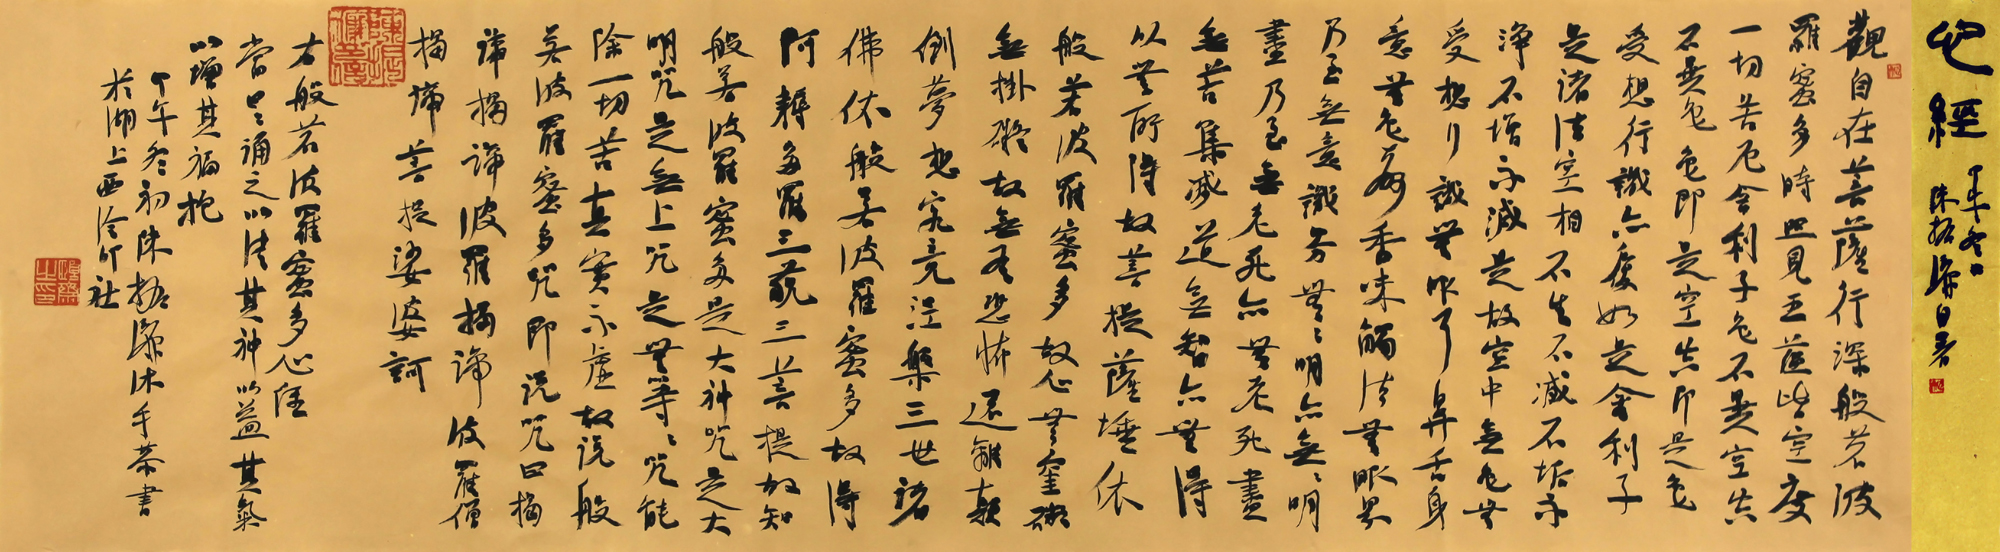 心經
甲午冬日
陳振濂自署
觀自在菩薩行深般若波
羅蜜多時照見五蘊皆空度
一切苦厄舍利子色不異空空
不異色色即是空空即是色
受想行識亦復如是舍利子
是諸法空相不生不滅不垢不
淨不增不減是故空中無色無
受想行識無眼耳鼻舌身
意無色聲香味觸法無眼界
乃至無意識界無無明亦無無明
盡乃至無老死亦無老死盡
無苦集滅道無智亦無得
以無所得故菩提薩埵依
般若波羅蜜多故心無罣礙
無掛礙故無有恐怖遠離顛
倒夢想究竟涅槃三世諸
佛依般若波羅蜜多故得
阿耨多羅三藐三菩提故知
般若波羅蜜多是大神咒是大
明咒是無上咒是無等等咒能
除一切苦真實不虛故說般
若波羅蜜多咒即說咒曰揭
諦揭諦波羅揭諦波羅僧
揭諦菩提娑婆訶
右般若波羅蜜多心經
當日日誦之以清其神以益其氣
以增其福也
甲午冬初陳振濂沐手恭書
於湖上西泠印社